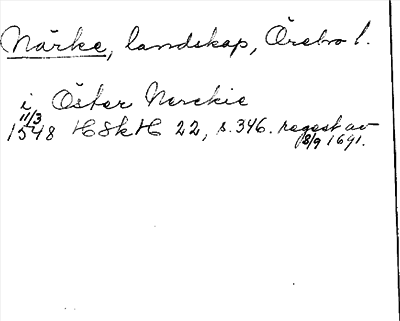 Närke, landskap, Örebro l.
i Öster Nerckie
11/3
1548 HSkH 22, s. 346. regest av
18/9 1691.